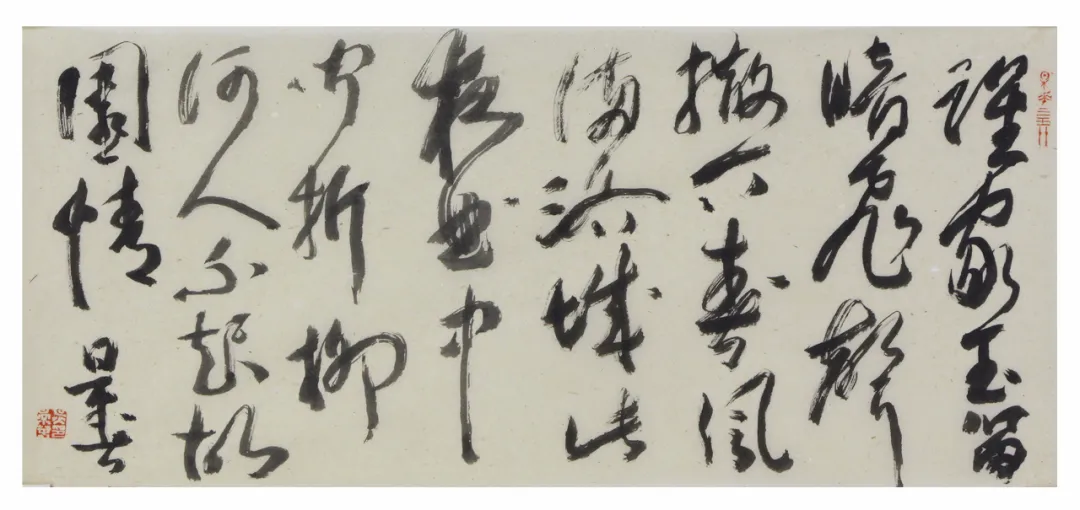 誰家玉笛
暗飛聲
撒入春風
滿洛城此
夜曲中
聞折柳
何人不起故
園情